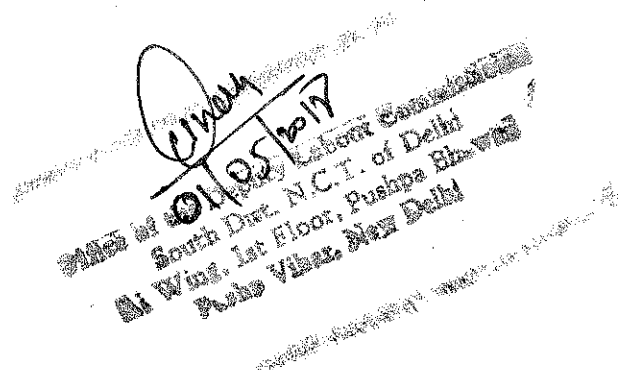 01/05/2017
Office of the Deputy Labour Commissioner
South Dist. N.C.T. of Delhi
A Wing, 1st Floor, Pushpa Bhawan
Pushp Vihar, New Delhi